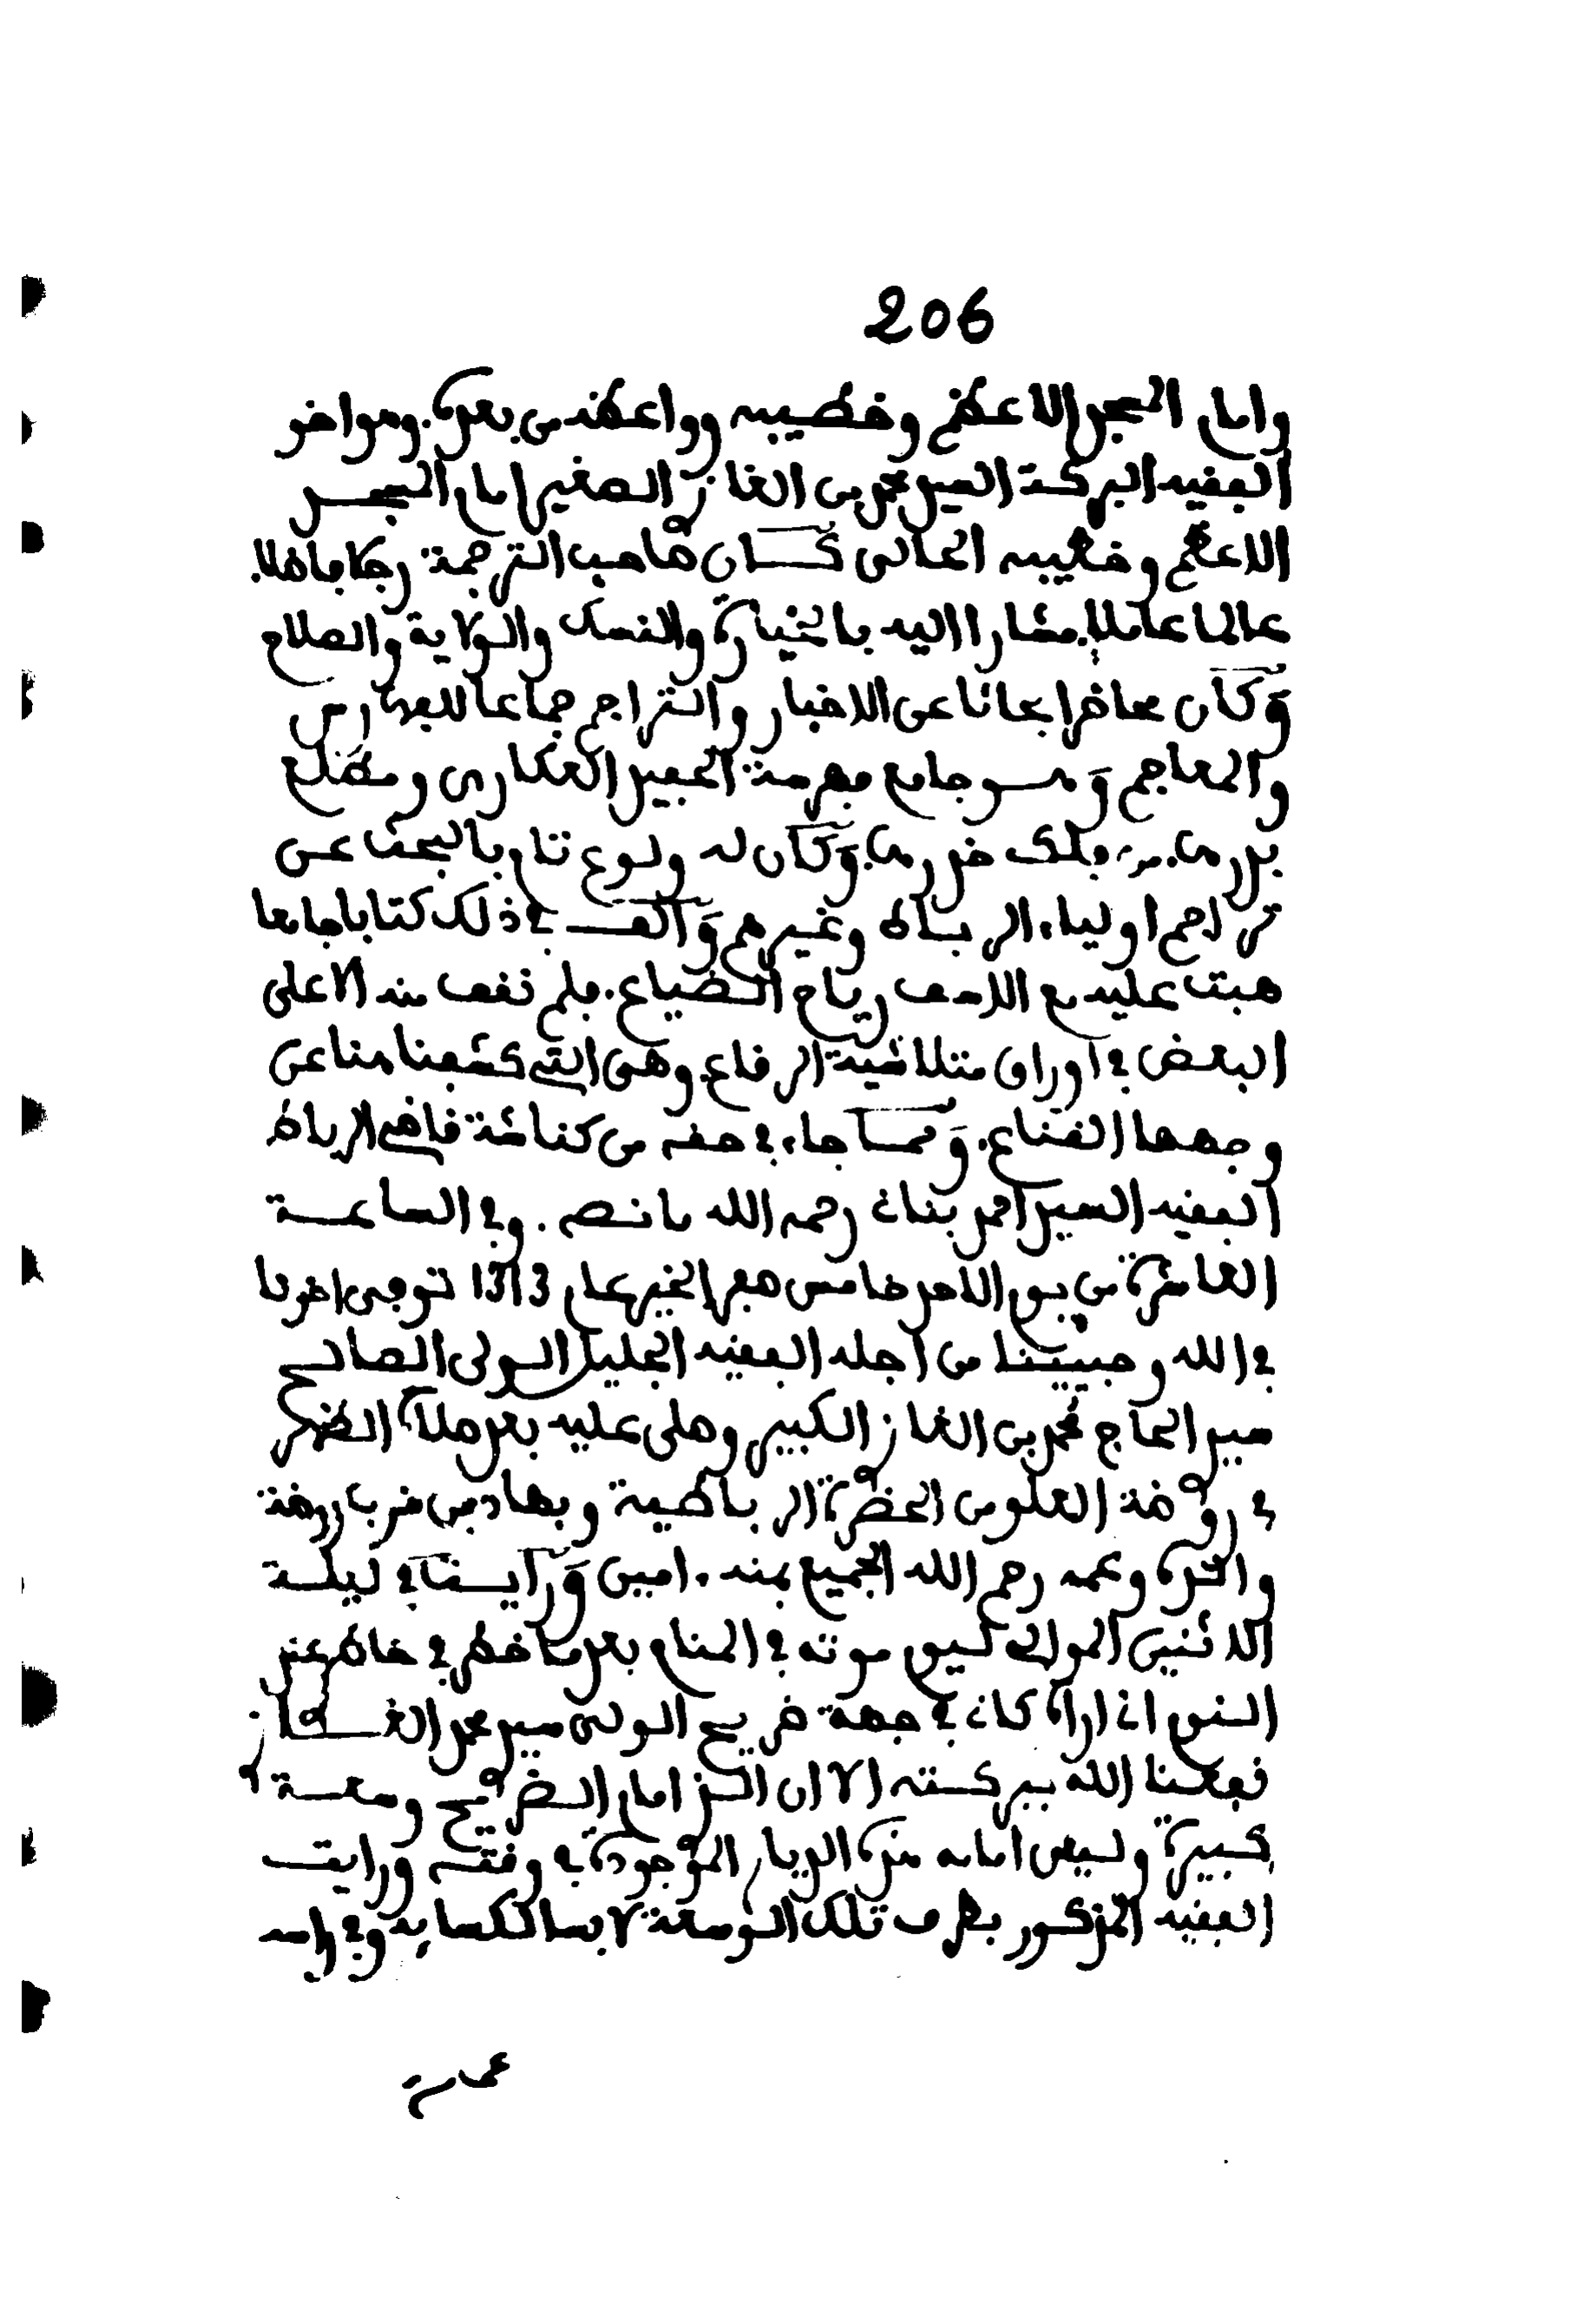 206
وامام المسجد الاعظم وخطيبه وواعظه من بعده. وهو اخو
الفقيه البركة السيد محمد بن الغاز الصغير امام المسجد
الاعظم وخطيبه الحالى كان صاحب الترجمة رجلا فاضلا.
عالما عاملا. مشارا اليه بالخيارة والنسك والولاية والصلاح
وكان محاضرا بحاثا عن الاخبار والتراجم جماعا للفهارس
والمعاجم وهو جامع فهرسة الحفيد العكارى ومطلع
بدرها من فلك خدرها. وكان له ولوع تام بالبحث عن
تراجم اولياء الرباط وغيرهم والف فى ذلك كتابا جامعا
هبت عليه مع الاسف رياح الضياع. فلم نقف منه الا على
البعض فى اوراق متلاشية الرقاع. وهى التى كشفنا هنا عن
وجهها القناع. ومما جاء فى حقه من كناشة قاضى الرباط
الفقيه السيد احمد بنانى رحمه الله ما نصه. وفى الساعة
العاشرة من يوم الاحد خامس صفر الخير عام 1313 توفى اخونا
فى الله وحبيبنا من اجله الفقيه الجليل الولى الصالح
سيد الحاج محمد بن الغاز الكبير وصلى عليه بعد صلاة الظهر
فى روضة العلو من الحضرة الرباطية وبها دفن قرب روضة
والده وعمه رحم الله الجميع بمنه. امين ورأيت فى ليلة
الاثنين الموالى ليوم موته فى المنام بعد ما خطر فى خاطر عند
النوم ان اراه كانى فى جهة ضريح الولى سيد محمد الغاز
نفعنا الله ببركته الا ان الذ امام الضريح وسعة
كبيرة وليس امامه هذه الديار الموجودة فى وقته ورايت
الفقيه المذكور بطرف تلك الوسعة لابسا لكسايه وفى راسه
عمامة